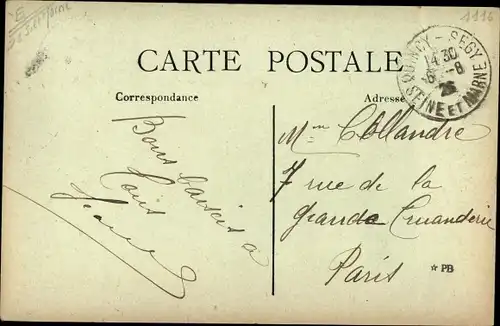 1116
CARTE POSTALE
Correspondance
Adresse
QUINCY - SEGY
14 30
6 - 8
26
SEINE ET MARNE
Bons baisers à
tous
Mme Collandre
7 rue de la
grande Truanderie
Paris
* PB